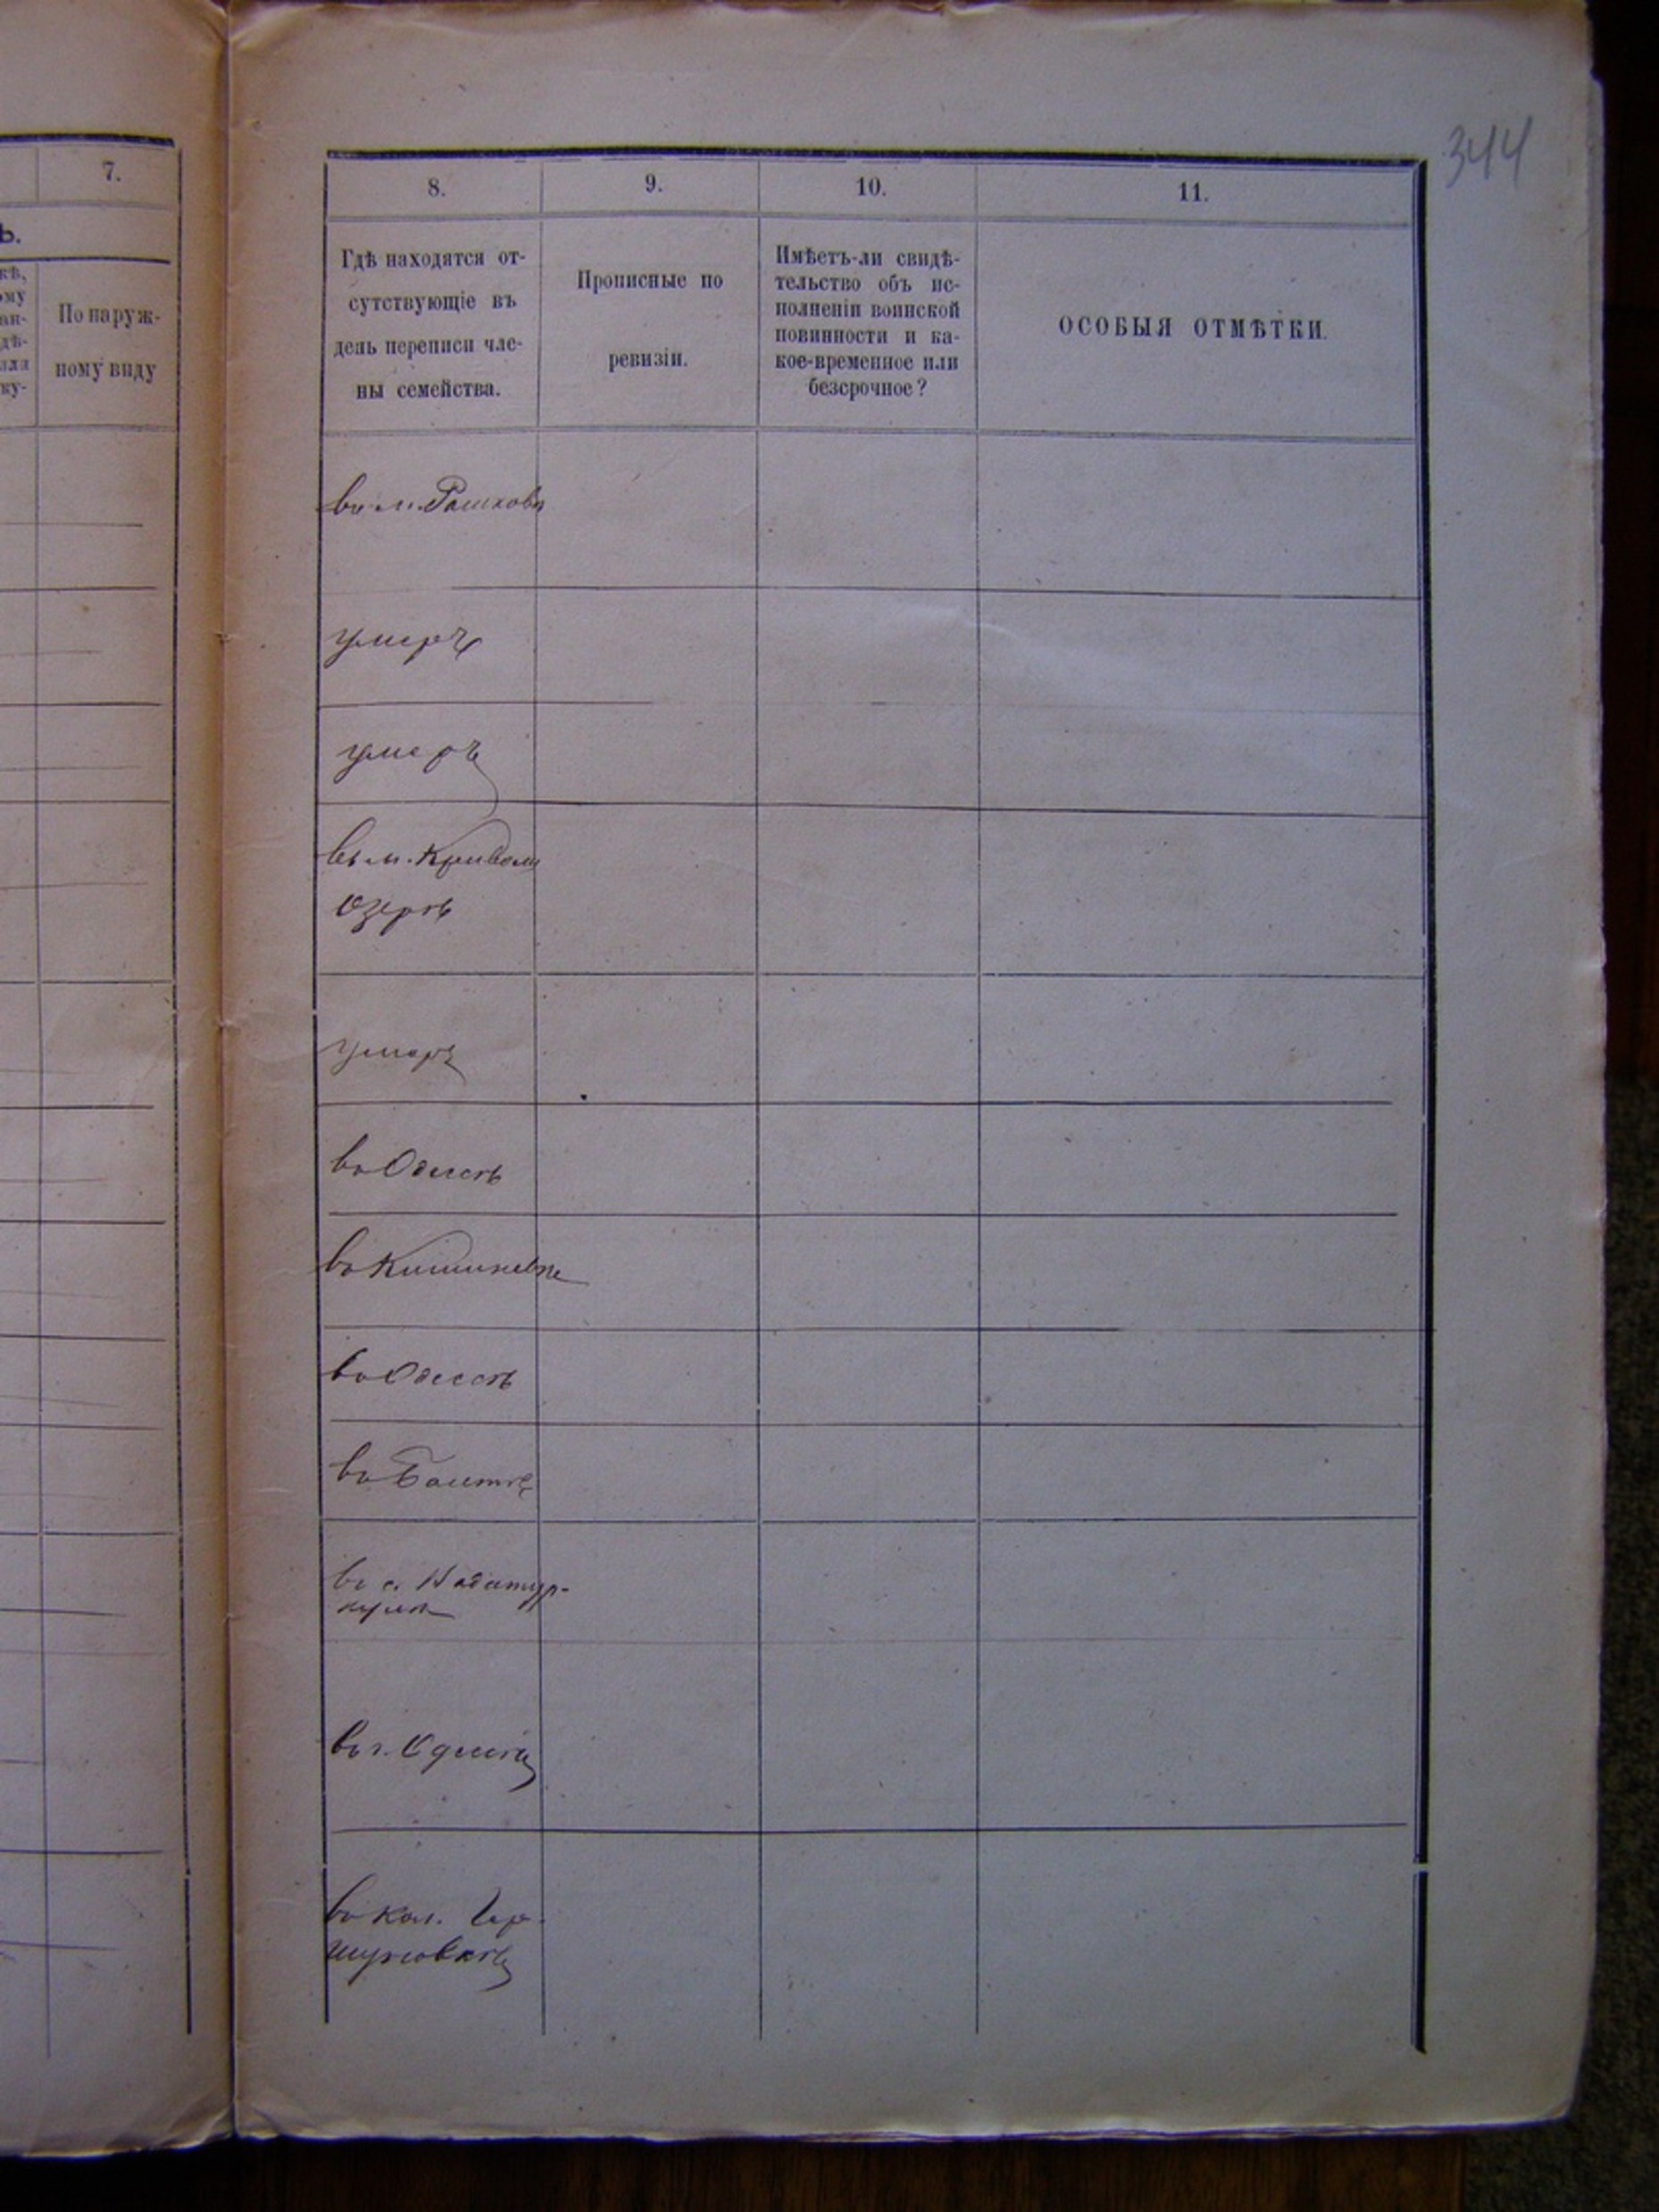 344
7.
8.
9.
10.
11.
ь.
По наруж-
ному виду
Гдѣ находятся от-
сутствующіе въ
день переписи чле-
ны семейства.
Прописные по
ревизіи.
Имѣетъ-ли свидѣ-
тельство объ ис-
полненіи воинской
повинности и ка-
кое-временное или
безсрочное?
ОСОБЫЯ ОТМѢТКИ.
въ м. Рашковѣ
умеръ
умеръ
въ м. Кривомъ
Озерѣ
умеръ
въ Одессѣ
въ Кишиневѣ
въ Одессѣ
въ Балтѣ
въ с.
въ г. Одессѣ
въ кол.